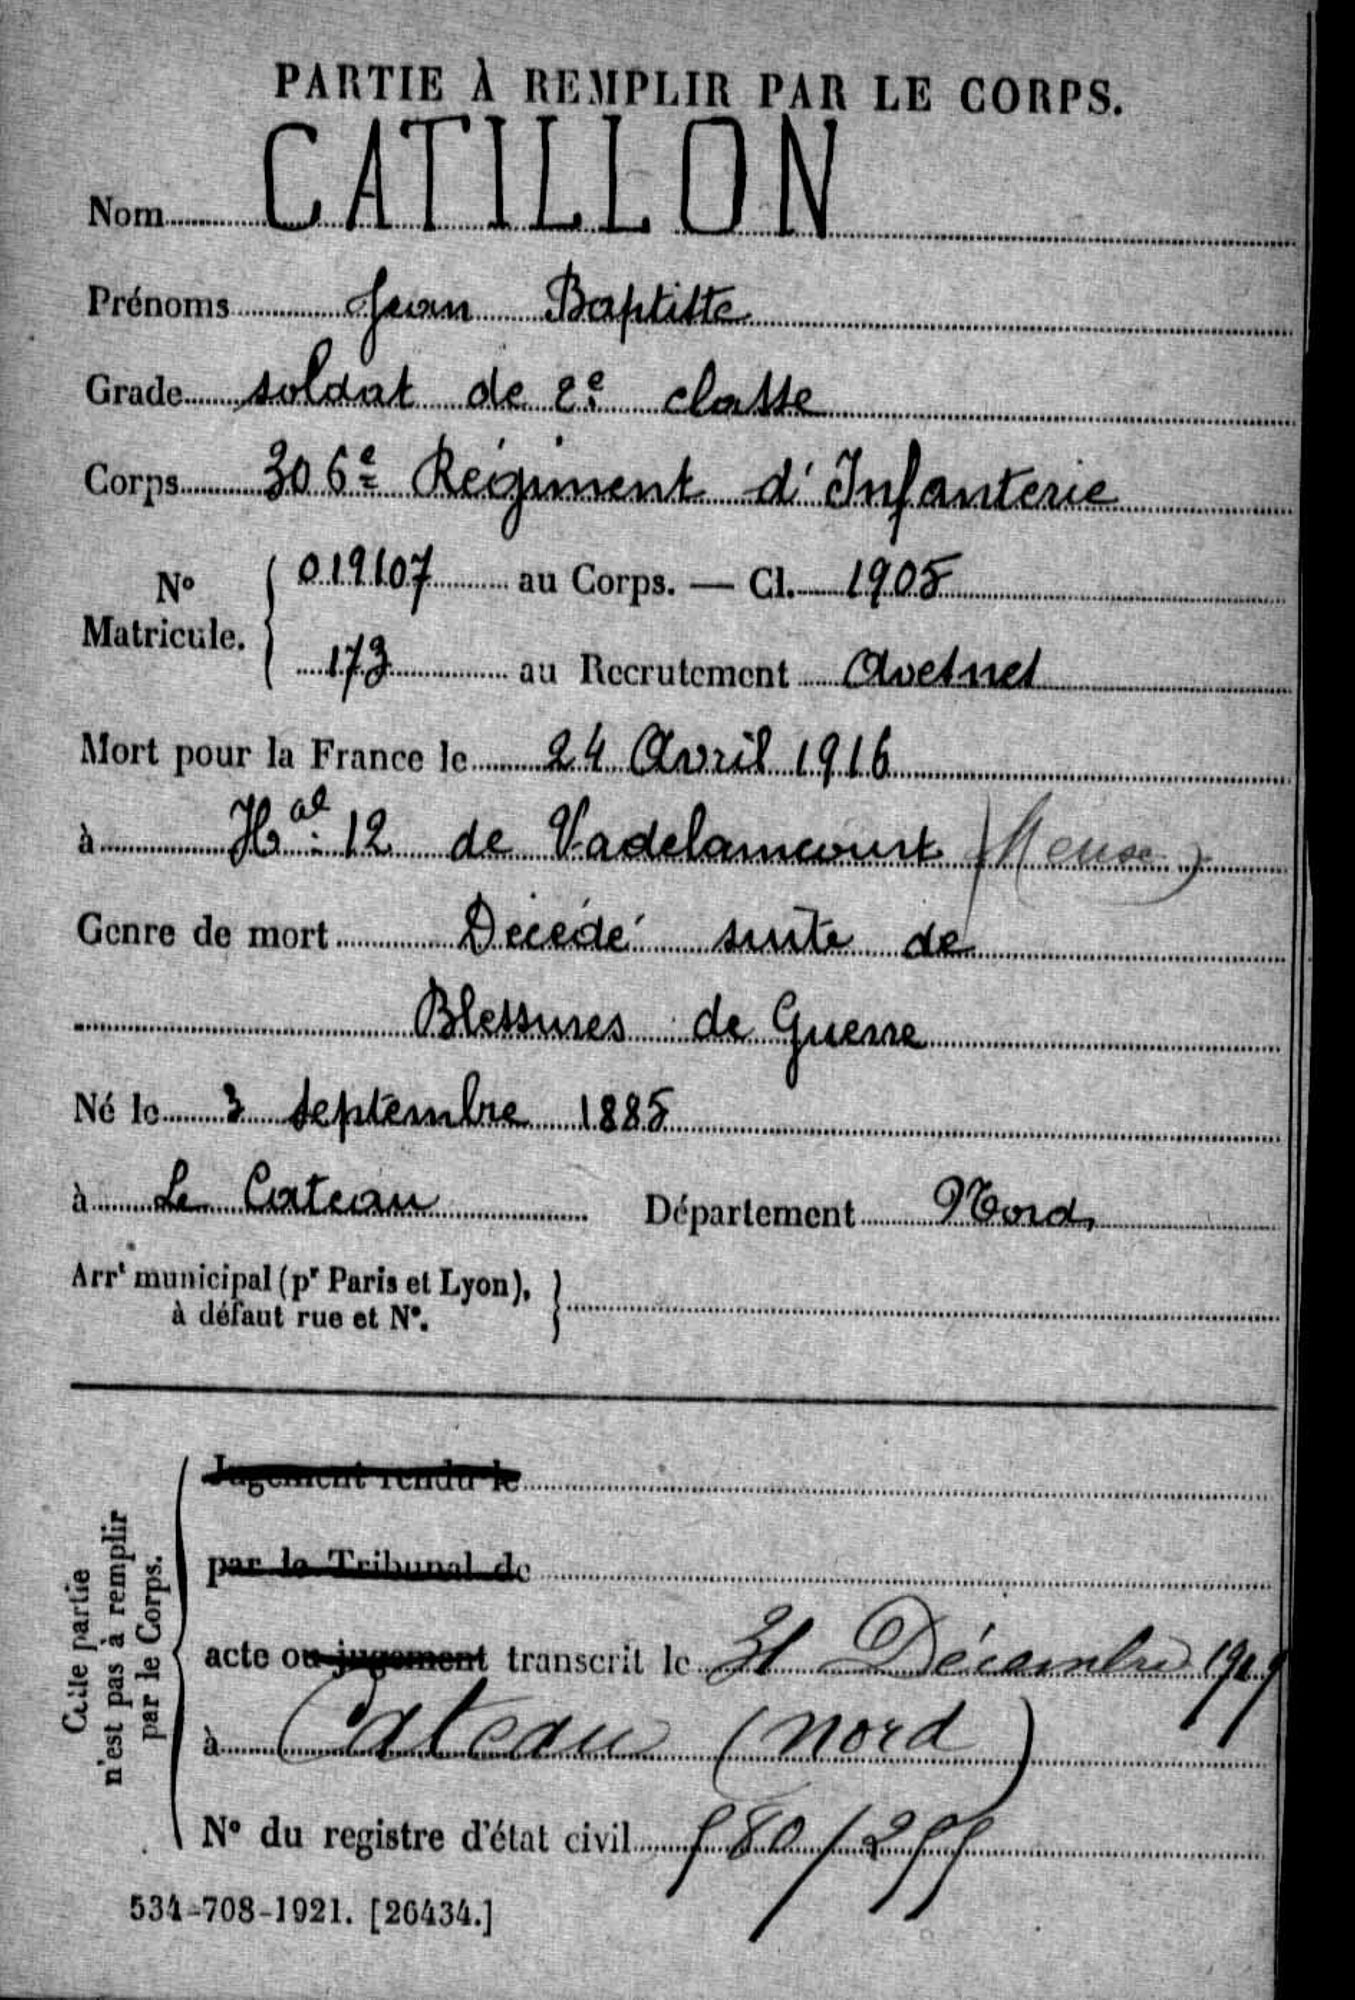 PARTIE À REMPLIR PAR LE CORPS.
Nom CATILLON
Prénoms Jean Baptiste
Grade soldat de 2e classe
Corps 306e Régiment d'Infanterie
No Matricule. { 019107 au Corps. — Cl. 1905
173 au Recrutement Avesnes
Mort pour la France le 24 Avril 1916
à Hal 12 de Vadelaincourt (Meuse)
Genre de mort Décédé suite de
Blessures de Guerre
Né le 3 septembre 1885
à Le Cateau Département Nord
Arrt municipal (pr Paris et Lyon),
à défaut rue et No.
Cette partie
n'est pas à remplir
par le Corps.
Jugement rendu le
par le Tribunal de
acte ou jugement transcrit le 31 Décembre
à Cateau (Nord)
No du registre d'état civil 580/255
534-708-1921. [26434.]